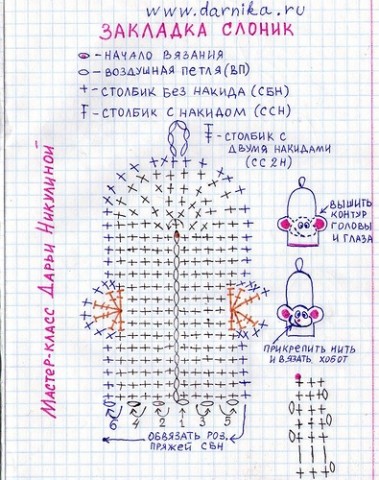 www.darnika.ru
ЗАКЛАДКА СЛОНИК
- НАЧАЛО ВЯЗАНИЯ
- ВОЗДУШНАЯ ПЕТЛЯ (ВП)
- СТОЛБИК БЕЗ НАКИДА (СБН)
- СТОЛБИК С НАКИДОМ (ССН)
- СТОЛБИК С
ДВУМЯ НАКИДАМИ
(СС2Н)
Мастер-класс Дарьи Никулиной
ВЫШИТЬ
КОНТУР
ГОЛОВЫ
И ГЛАЗА
ПРИКРЕПИТЬ НИТЬ
И ВЯЗАТЬ ХОБОТ
6 4 2 1 3 5
ОБВЯЗАТЬ РОЗ.
ПРЯЖЕЙ СБН